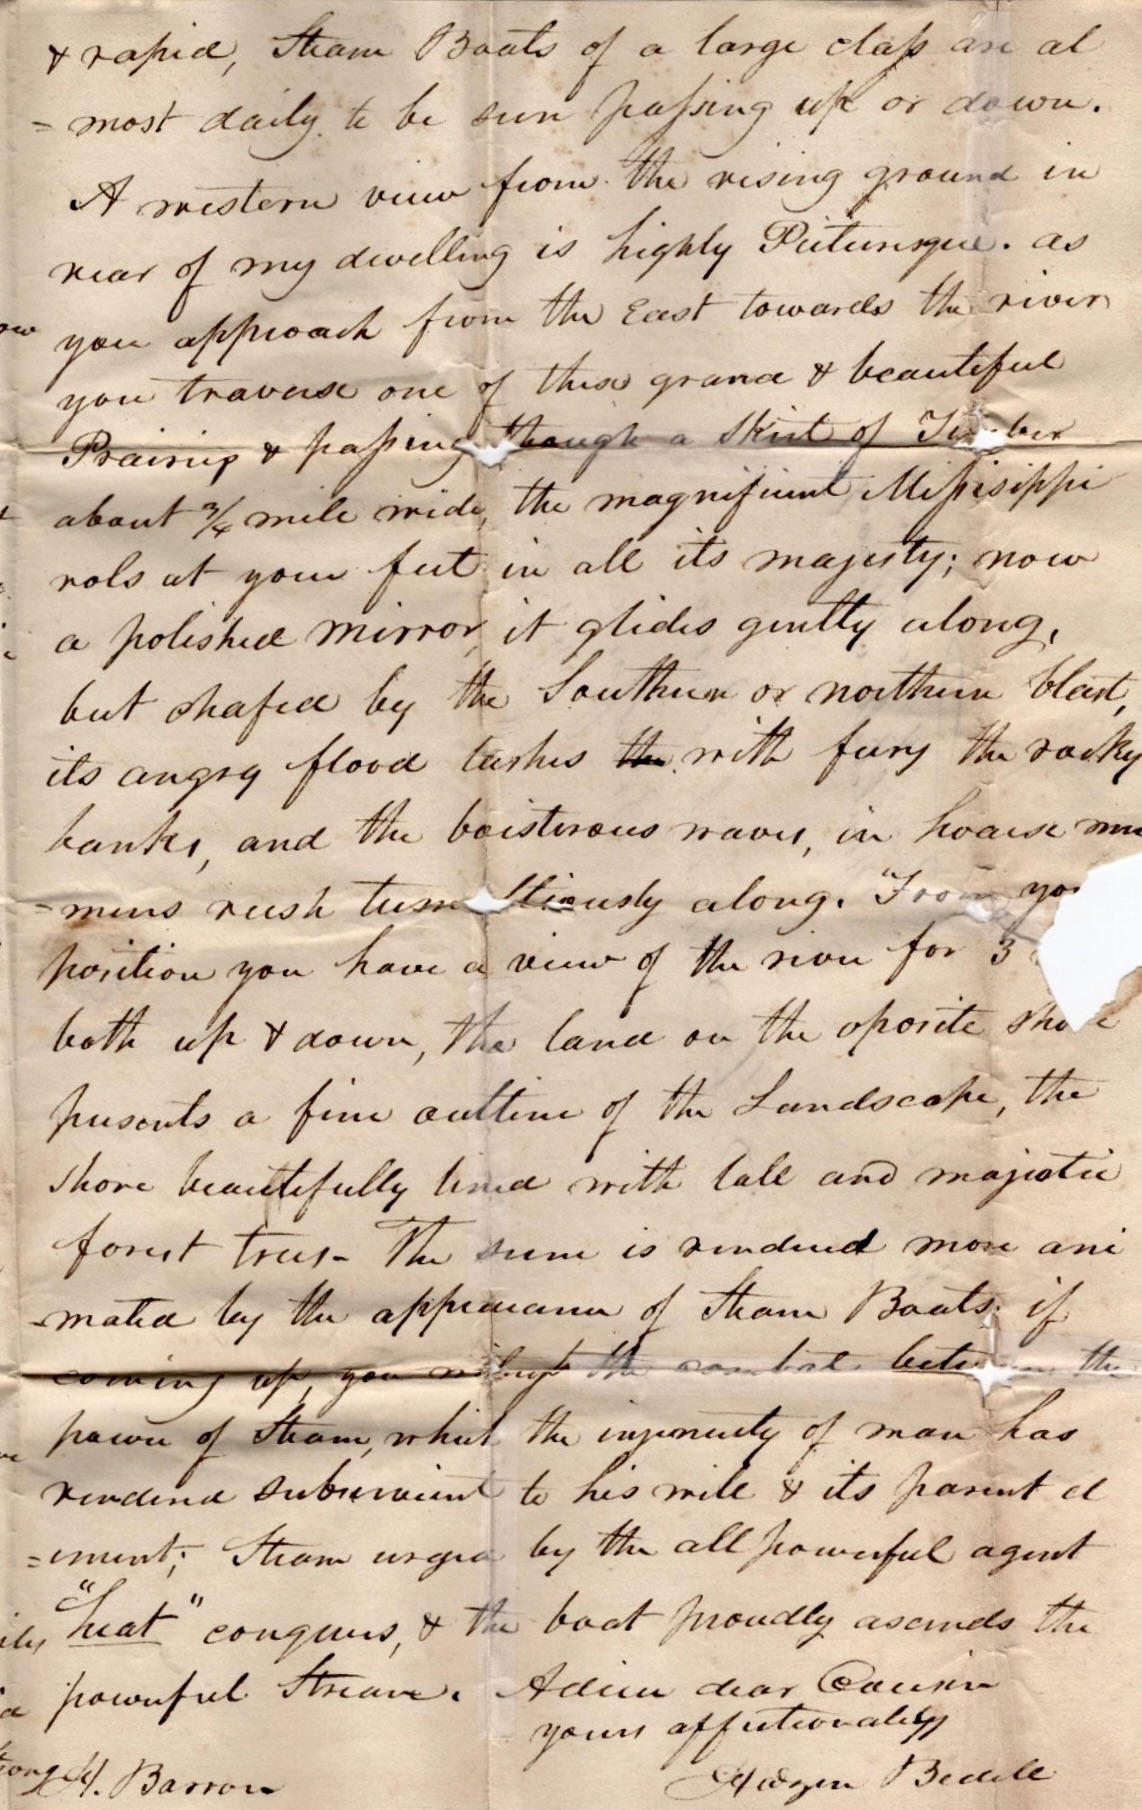 & rapid, Steam Boats of a large class are al
= most daily to be seen passing up or down.
A western view from the rising ground in
rear of my dwelling is highly Picturesque. as
you approach from the East towards the river
you traverse one of those grand & beautiful
Prairies & passing though a Skirt of Timber
about 3/4 mile wide, the magnificent Missisippi
rols at your feet in all its majesty; now
a polished mirror, it glides gently along,
but chafed by the Southern or northern blast,
its angry flood lashes the with fury the rocky
banks, and the boisterous waves, in hoarse mur
= murs rush tumultiously along. From you
position you have a view of the river for 3
both up & down, the land on the oposite shore
presents a fine outline of the Landscape, the
shore beautifully lined with tall and majestic
forest trees - The scene is rendered more ani
- mated by the appearance of Steam Boats; if
coming up, you witness the combat between the
power of Steam, which the ingenuity of man has
rendered subservient to his will & its parent el
= ement; Steam urged by the all powerful agent
"heat" conquers, & the boat proudly ascends the
powerful Stream. Adieu dear Cousin
yours affectionately
H. Barron Hidgen Bedell